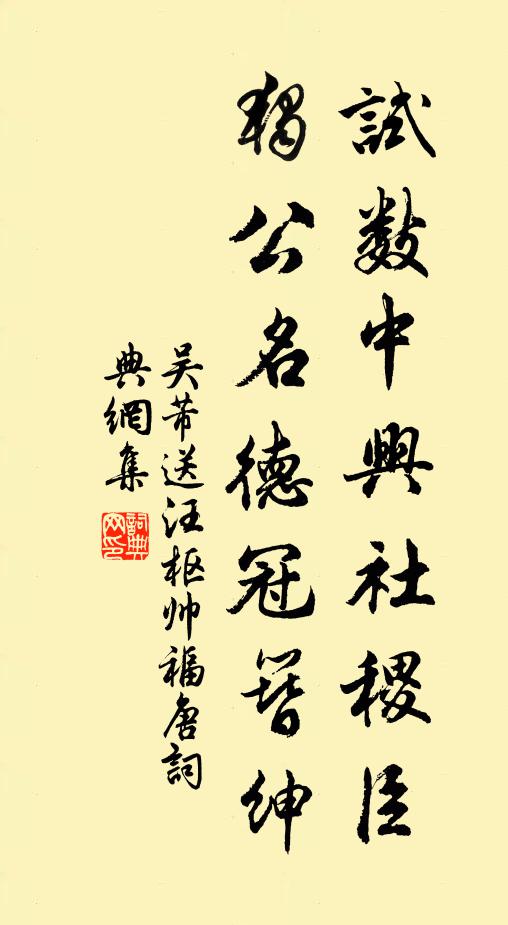 試数中興社稷臣
獨公名德冠簪紳
吴芾送汪枢帅福唐詞
典網集
詞典
网印